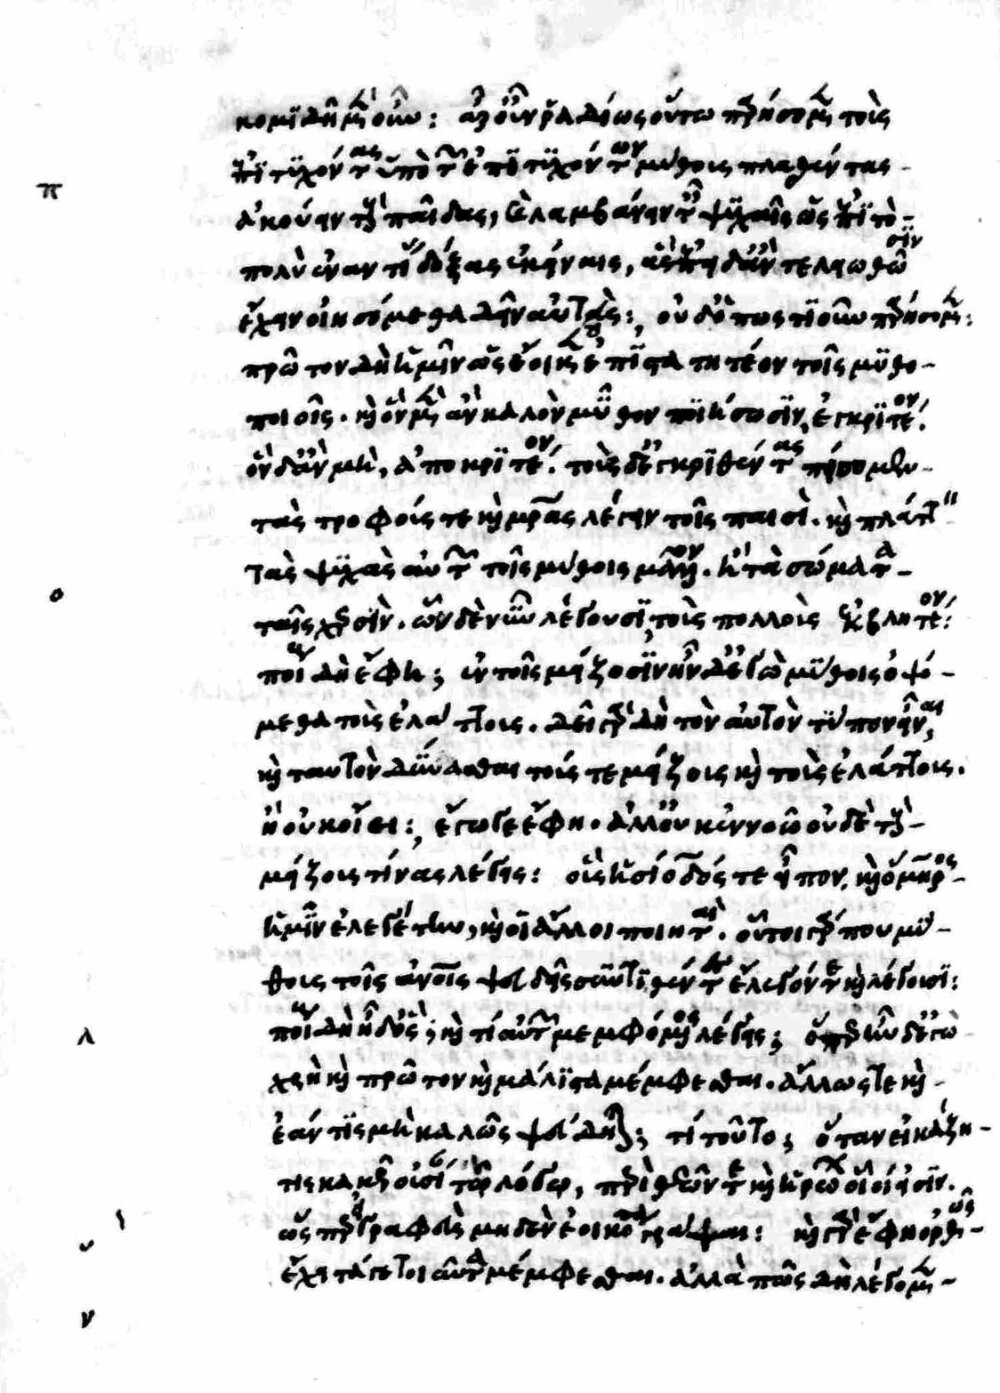 κομϊδῆ μὲν οὖν: ἆρ' οὖν ῥαδίως οὕτω παρήσομεν τοὺς
ἐπϊτϋχόντας ὑπὸ τῶν ἐπϊτϋχόντων μύθους πλασθέντας
ἀκούειν τοὺς παῖδας, καὶ λαμβάνειν ἐν ταῖς ψϋχαῖς ὡς ἐπϊτο-
πολὺ ἐναντίας δόξας ἐκείναις, ἃς ἐπειδὰν τελεωθῶσϊν
ἔχειν οἰησόμεθα δεῖν αὐτὰς: οὐδ' ὁπωστϊοῦν παρήσομεν:
πρῶτον δὴ ἡμῖν ὡς ἔοικεν ἐπϊστατητέον τοῖς μϋθο-
ποιοῖς. καὶ ὃν μὲν ἂν καλὸν μῦθον ποϊήσωσϊν, ἐγκρϊτέον.
ὃν δ' ἂν μὴ, ἀποκρϊτέον. τοὺς δ' ἐγκρϊθέντας πείσομεν
τὰς τροφούς τε καὶ μητέρας λέγειν τοῖς παισὶ. καὶ πλάττειν
τὰς ψϋχὰς αὐτῶν τοῖς μύθοις μᾶλλον. ἢ τὰ σώματα
ταῖς χερσὶν. ὧν δὲ νῦν λέγουσϊ τοὺς πολλοὺς ἐκβλητέον:
ποίους δὴ ἔφη; ἐν τοῖς μείζοσϊν ἦν δ' ἐγὼ μϋθοις ὀψό-
μεθα τοὺς ἐλάττους. δεῖ γὰρ δὴ τὸν αὐτὸν τϋπον εἶναι,
καὶ ταυτὸν δϋνασθαι τούς τε μείζους καὶ τοὺς ἐλάττους.
ἢ οὐκ οἴει: ἔγωγε ἔφη. ἀλλ' οὐκ ἐννοῶ οὐδὲ τοὺς
μείζους τίνας λέγεις: οὓς ἡσίοδός τε εἶπον, καὶ ὅμηρος
ἡμῖν ἐλεγέτην, καὶ οἱ ἄλλοι ποιηταὶ. οὗτοι γάρ που μϋ-
θους τοῖς ἀνοις ψευδεῖς συντϊθέντες ἔλεγόν τε καὶ λέγουσϊ:
ποίους δὴ ἦ δ' ὃς; καὶ τί αὐτῶν μεμφόμενος λέγεις; ὅπερ ἦν δ' ἐγὼ
χρὴ καὶ πρῶτον καὶ μάλϊστα μέμφεσθαι. ἄλλως τε καὶ
ἐάν τϊς μὴ καλῶς ψεύδηται; τί τοῦτο; ὅταν εἰκάζη
τις κακῶς οὐσίαν τῶ λόγω, περὶ θεῶν τε καὶ ἡρώων οἷοί εἰσϊν.
ὥσπερ γραφεὺς μηδὲν ἐοικότα γράφων: καὶ γὰρ ἔφη ὀρθῶς
ἔχει τά γε τοιαῦτα μέμφεσθαι. ἀλλὰ πῶς δὴ λέγομεν